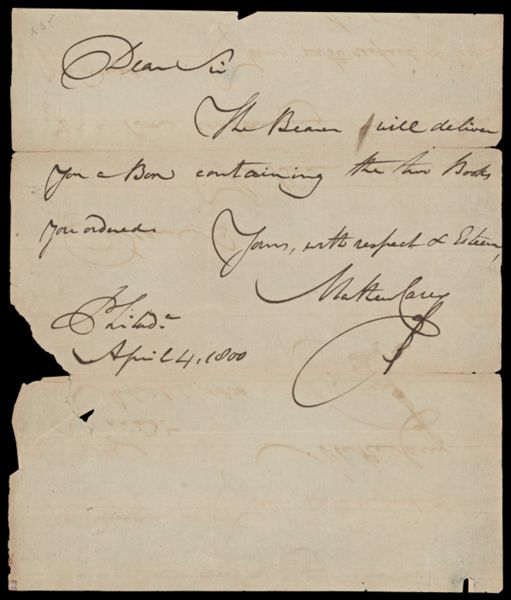 Dear Sir
The Bearer will deliver
you a Box containing the two Books
you ordered
Yours, with respect & Esteem,
Mathew Carey
Philad.a
April 4, 1800